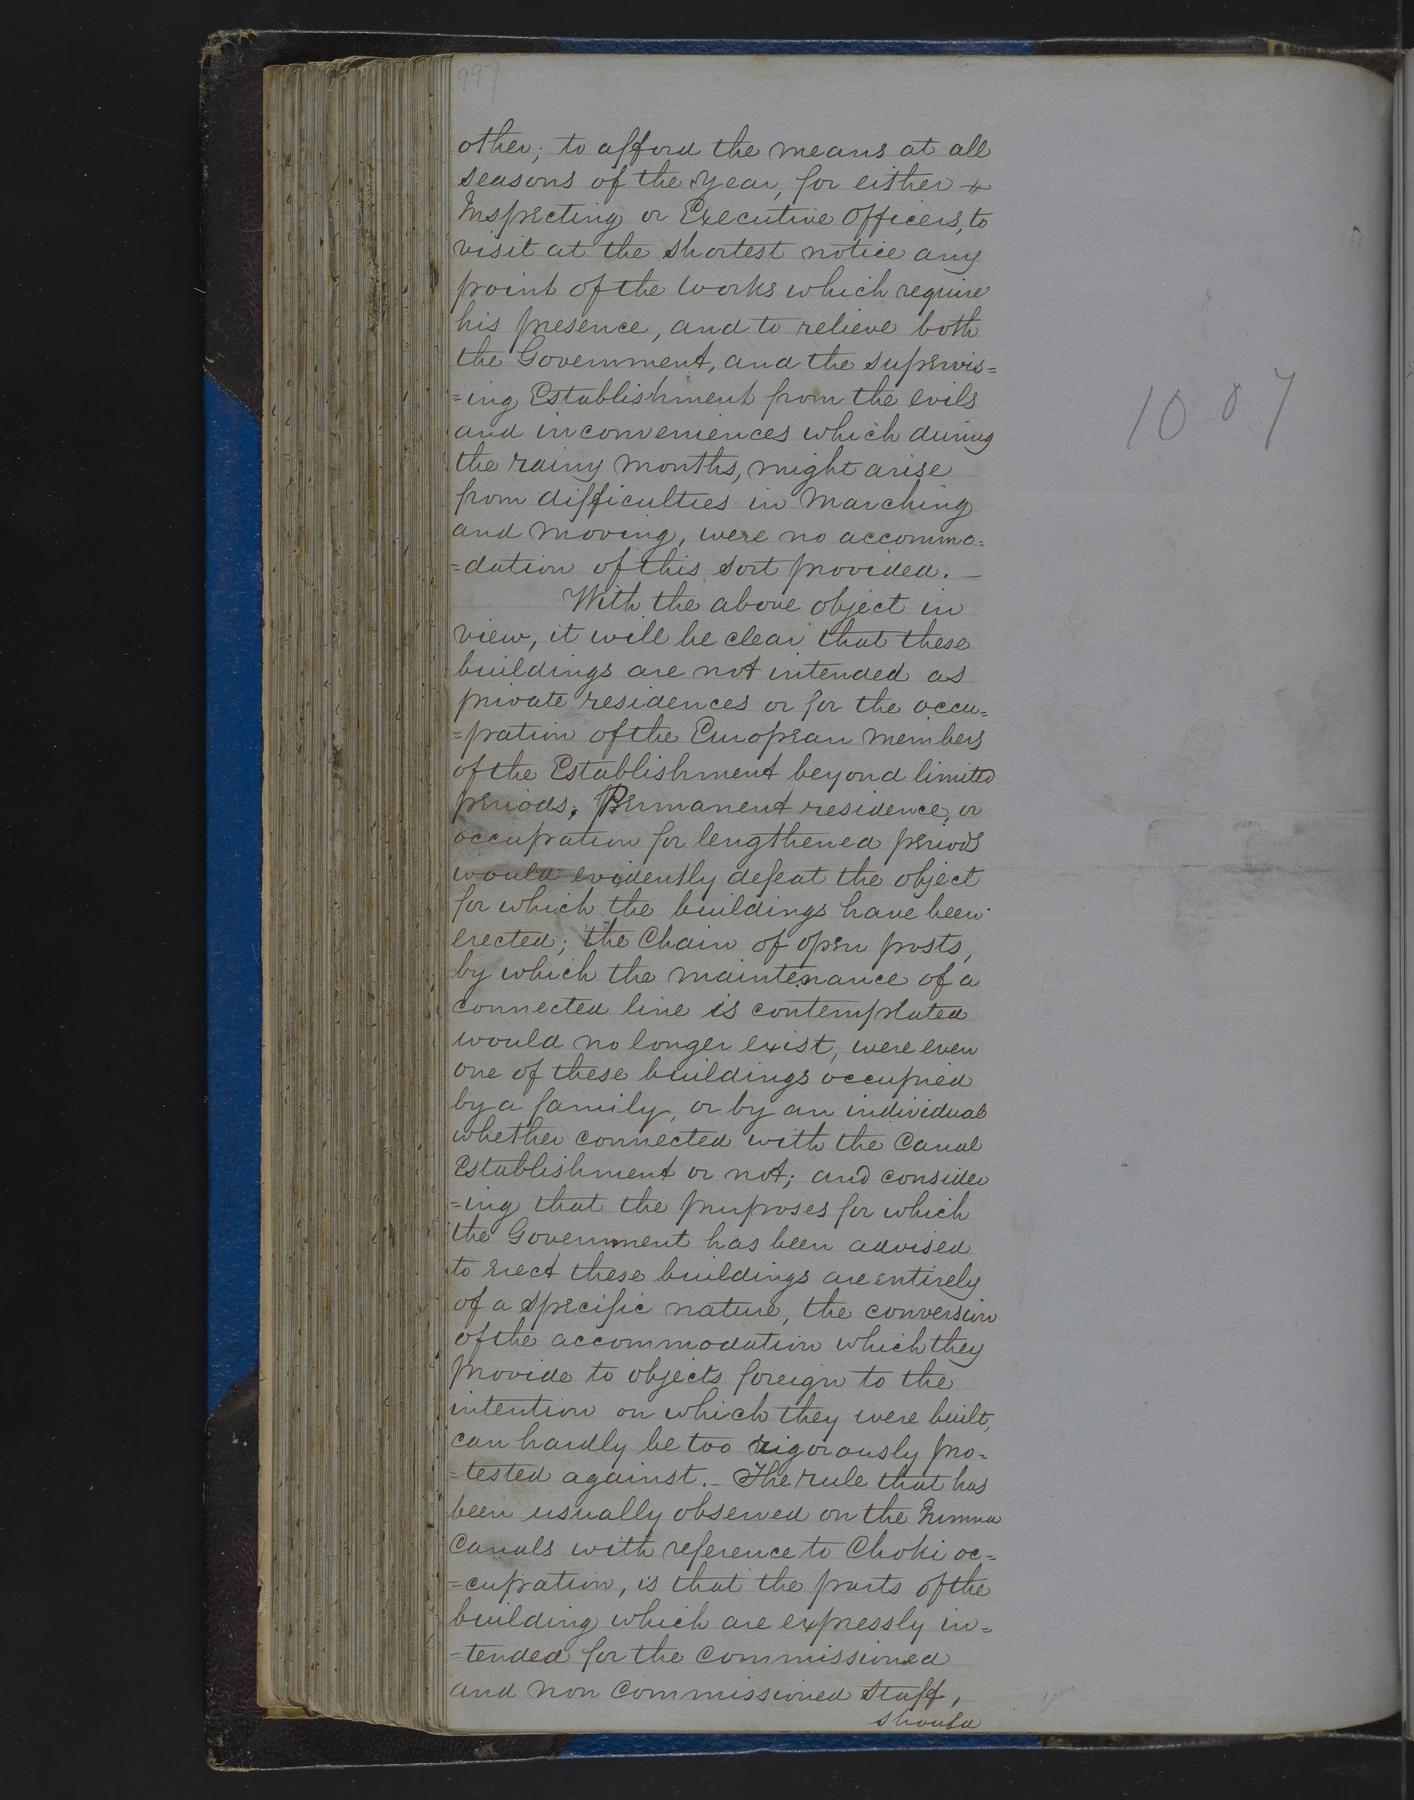 997
other; to afford the means at all
seasons of the year, for either
Inspecting or Executive Officers, to
visit at the shortest notice any
point of the works which require
his presence, and to relieve both
the Government, and the supervis=
=ing Establishment from the evils
and inconveniences which during
the rainy months, might arise
from difficulties in marching
and moving, were no accommo=
=dation of this sort provided. —
With the above object in
view, it will be clear that these
buildings are not intended as
private residences or for the occu=
=pation of the European members
of the Establishment beyond limited
periods; Permanent residence, or
occupation for lengthened periods
would evidently defeat the object
for which the buildings have been
erected; the Chain of open posts,
by which the maintenance of a
connected line is contemplated
would no longer exist, were even
one of these buildings occupied
by a family, or by an individual
whether connected with the Canal
Establishment or not; and consider
=ing that the purposes for which
the Government has been advised
to erect these buildings are entirely
of a specific nature, the conversion
of the accommodation which they
provide to objects foreign to the
intention on which they were built,
can hardly be too rigorously pro=
=tested against. – The rule that has
been usually observed on the Jumna
Canals with reference to Choki oc=
=cupation, is that the parts of the
building which are expressly in=
=tended for the Commissioned
and non Commissioned Staff,
should
1007